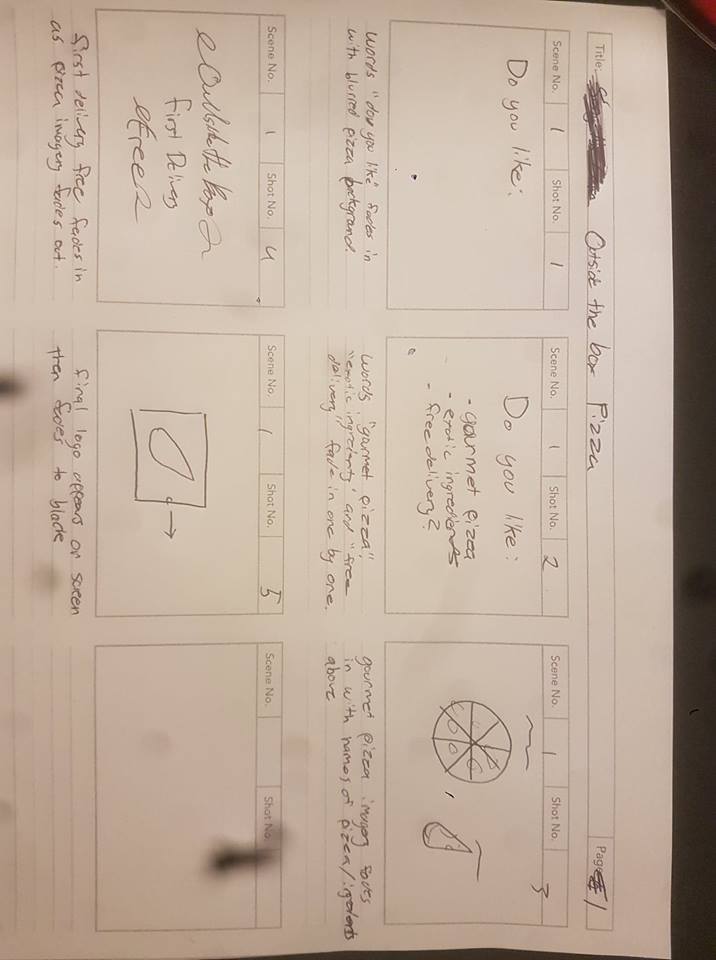 Title. Outside the box Pizza
Page 1
Scene No. 1 Shot No. 1
Do you like:
words "do you like" fades in
with blurred pizza background.
Scene No. 1 Shot No. 2
Do you like:
- gourmet pizza
- exotic ingredients
- free delivery?
words "gourmet pizza",
"exotic ingredients" and "free
delivery" fade in one by one.
Scene No. 1 Shot No. 3
gourmet pizza imagery fades
in with names of pizza/ingredients
above
Scene No. 1 Shot No. 4
Outside the Box
First Delivery
Free
first delivery free fades in
as pizza imagery fades out.
Scene No. 1 Shot No. 5
final logo appears on screen
then fades to black
Scene No. Shot No.